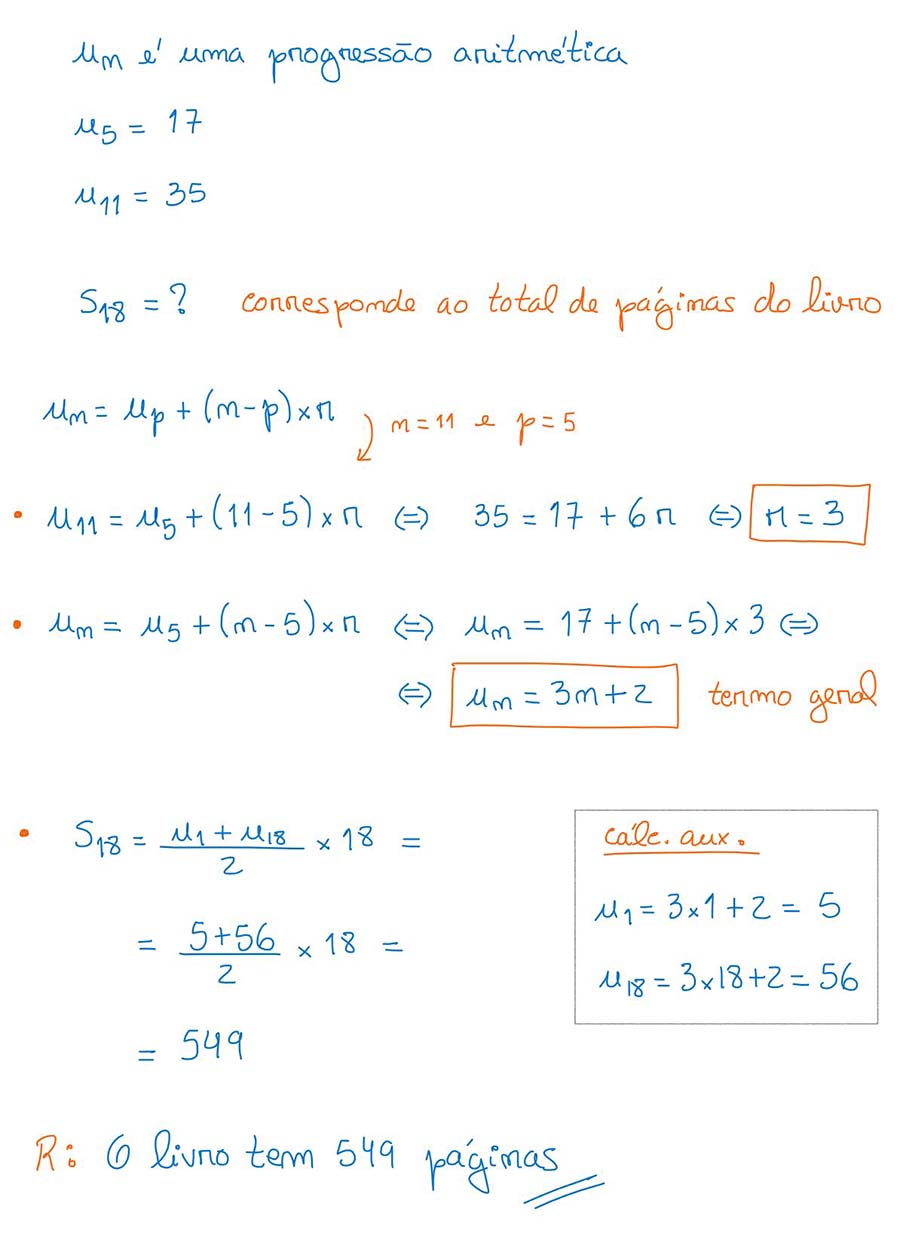 uₙ é uma progressão aritmética
u₅ = 17
u₁₁ = 35
S₁₈ = ? corresponde ao total de páginas do livro
uₙ = uₚ + (n-p)×r
n = 11 e p = 5
• u₁₁ = u₅ + (11-5)×r ⇔ 35 = 17 + 6r ⇔ r = 3
• uₙ = u₅ + (n-5)×r ⇔ uₙ = 17 + (n-5)×3 ⇔
⇔ uₙ = 3n+2 termo geral
• S₁₈ = (u₁ + u₁₈)/2 × 18 =
= (5+56)/2 × 18 =
= 549
cálc. aux.
u₁ = 3×1+2 = 5
u₁₈ = 3×18+2 = 56
R: O livro tem 549 páginas